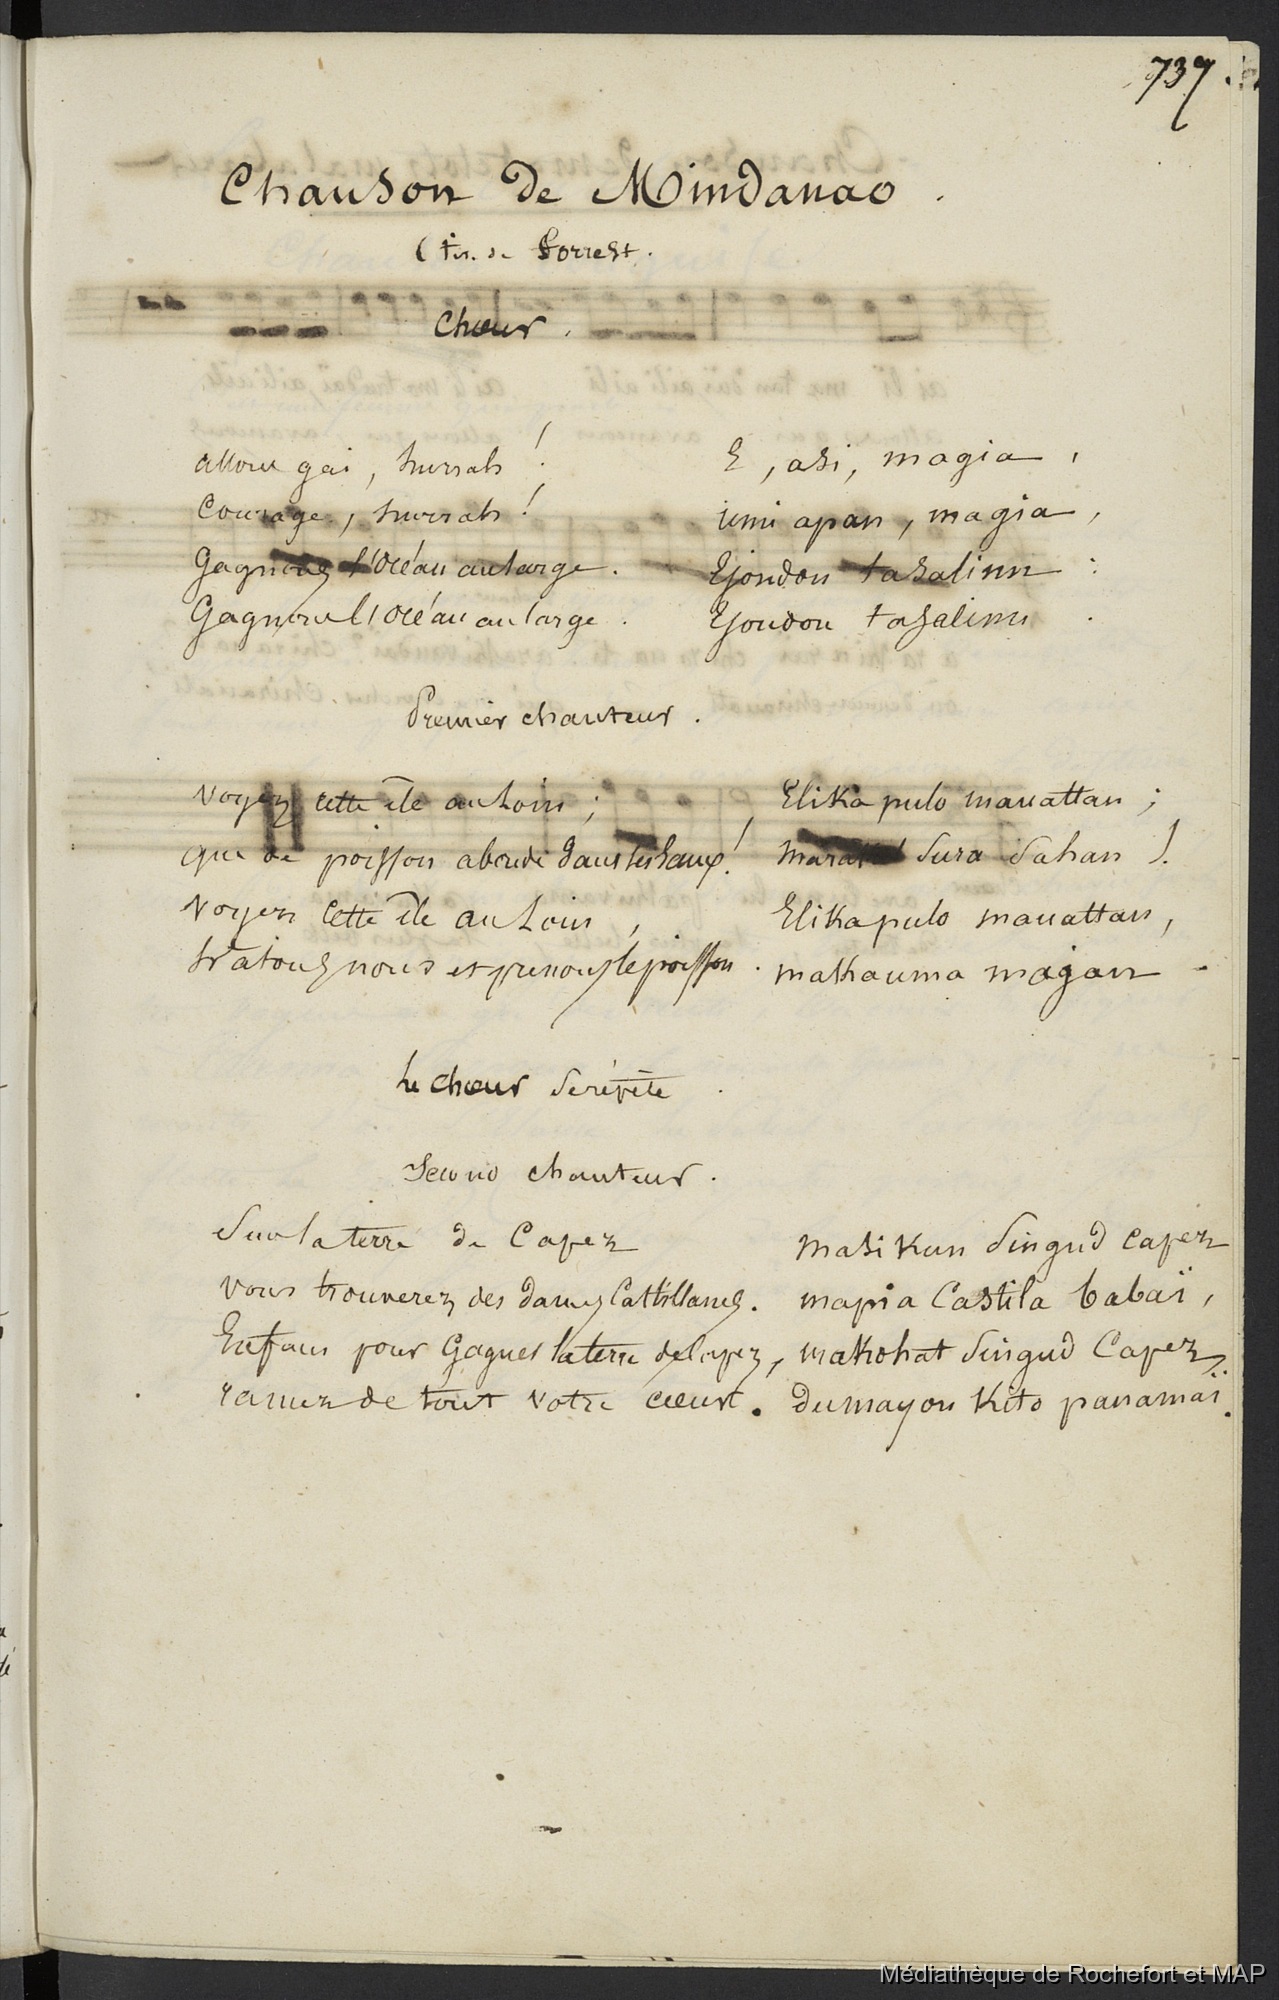 737.
Chanson de Mindanao.
(tir. de Forrest.
Chœur.
allons gai, hurrah! E, asi, magia,
Courage, hurrah! umi apan, magia,
Gagnons l'Océan au large. Ejondon tasalimn :
Gagnons l'Océan au large. Ejondon tasalimn.
Premier chanteur.
Voyez cette ile au Loin; Elika pulo manattan;
que de poisson abonde dans les Eaux! Sura dahan!
Voyez cette île au Loin, Elika pulo manattan,
hâtons nous et prenons le poisson. makauma magan
Le chœur se répète.
Second chanteur.
Sur la terre de Capez Masikun Singud Capez
vous trouverez des dames Castillanes. mapia Castila babaï,
Enfans pour Gagner la terre de Capez, makohat Singud Capez,
ramez de tout votre cœur. dumayon Kito panamaï.
Médiathèque de Rochefort et MAP